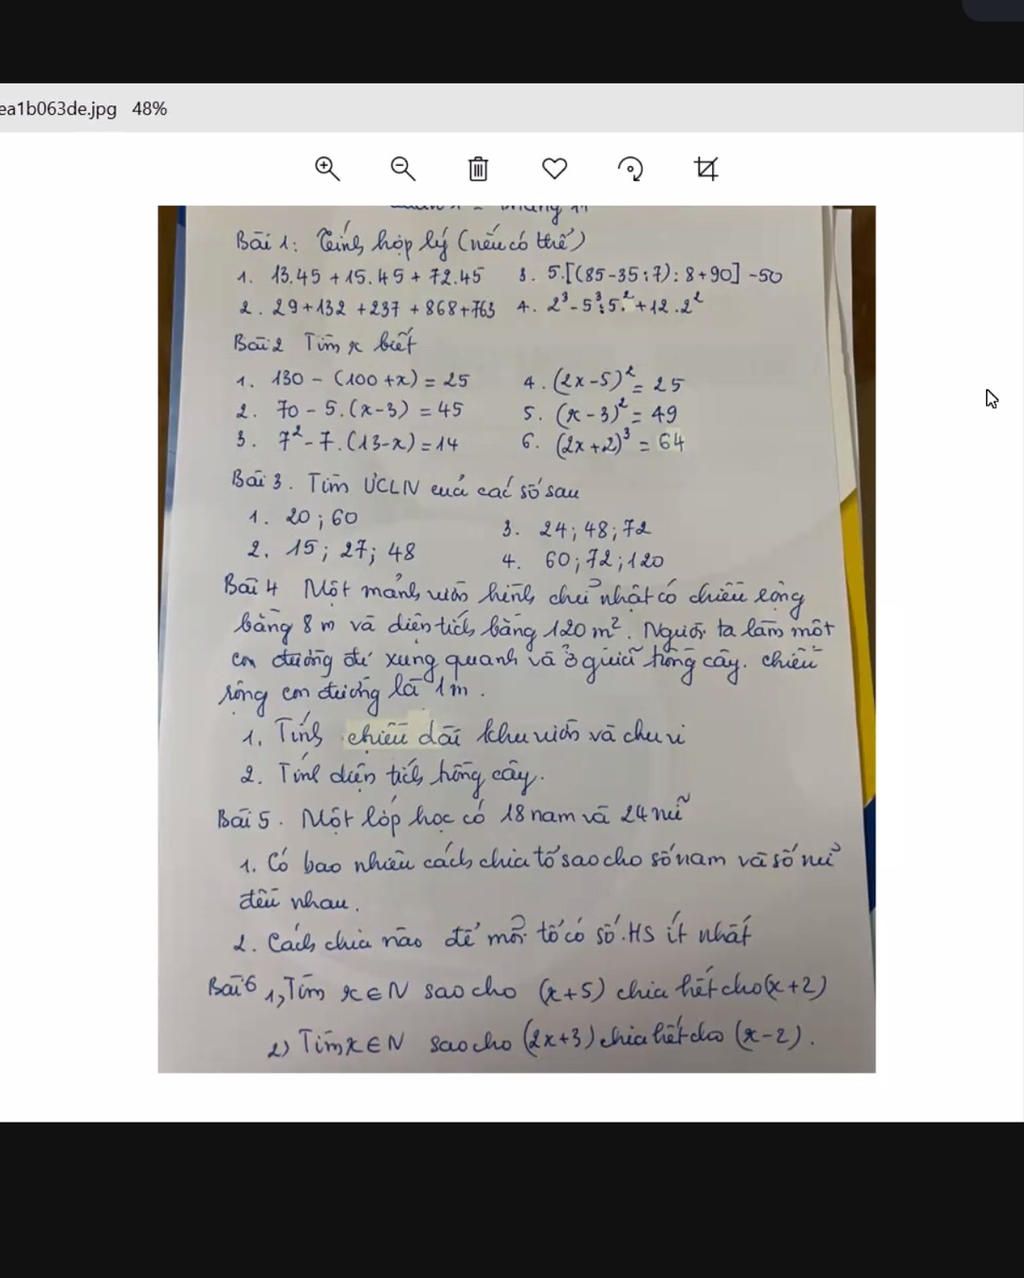 ea1b063de.jpg 48%
Bài 1: Tính hợp lý (nếu có thể)
1. 13.45 + 15.45 + 72.45
3. 5.[(85-35:7):8+90] -50
2. 29+132 +237 +868+763
4. 2³-5³:5²+12.2²
Bài 2 Tìm x biết
1. 130 - (100 +x) = 25
4. (2x-5)² = 25
2. 70 - 5.(x-3) = 45
5. (x-3)² = 49
3. 7²-7.(13-x)=14
6. (2x+2)³ = 64
Bài 3. Tìm ƯCLN của các số sau
1. 20; 60
3. 24; 48; 72
2. 15; 27; 48
4. 60; 72; 120
Bài 4 Một mảnh vườn hình chữ nhật có chiều rộng
bằng 8 m và diện tích bằng 120 m². Người ta làm một
con đường đi xung quanh và ở giữa trồng cây. chiều
rộng con đường là 1m.
1. Tính chiều dài khu vườn và chu vi
2. Tính diện tích trồng cây.
Bài 5. Một lớp học có 18 nam và 24 nữ
1. Có bao nhiêu cách chia tổ sao cho số nam và số nữ
đều nhau.
2. Cách chia nào để mỗi tổ có số HS ít nhất
Bài 6 1, Tìm x∈N sao cho (x+5) chia hết cho (x+2)
2) Tìm x∈N sao cho (2x+3) chia hết cho (x-2).